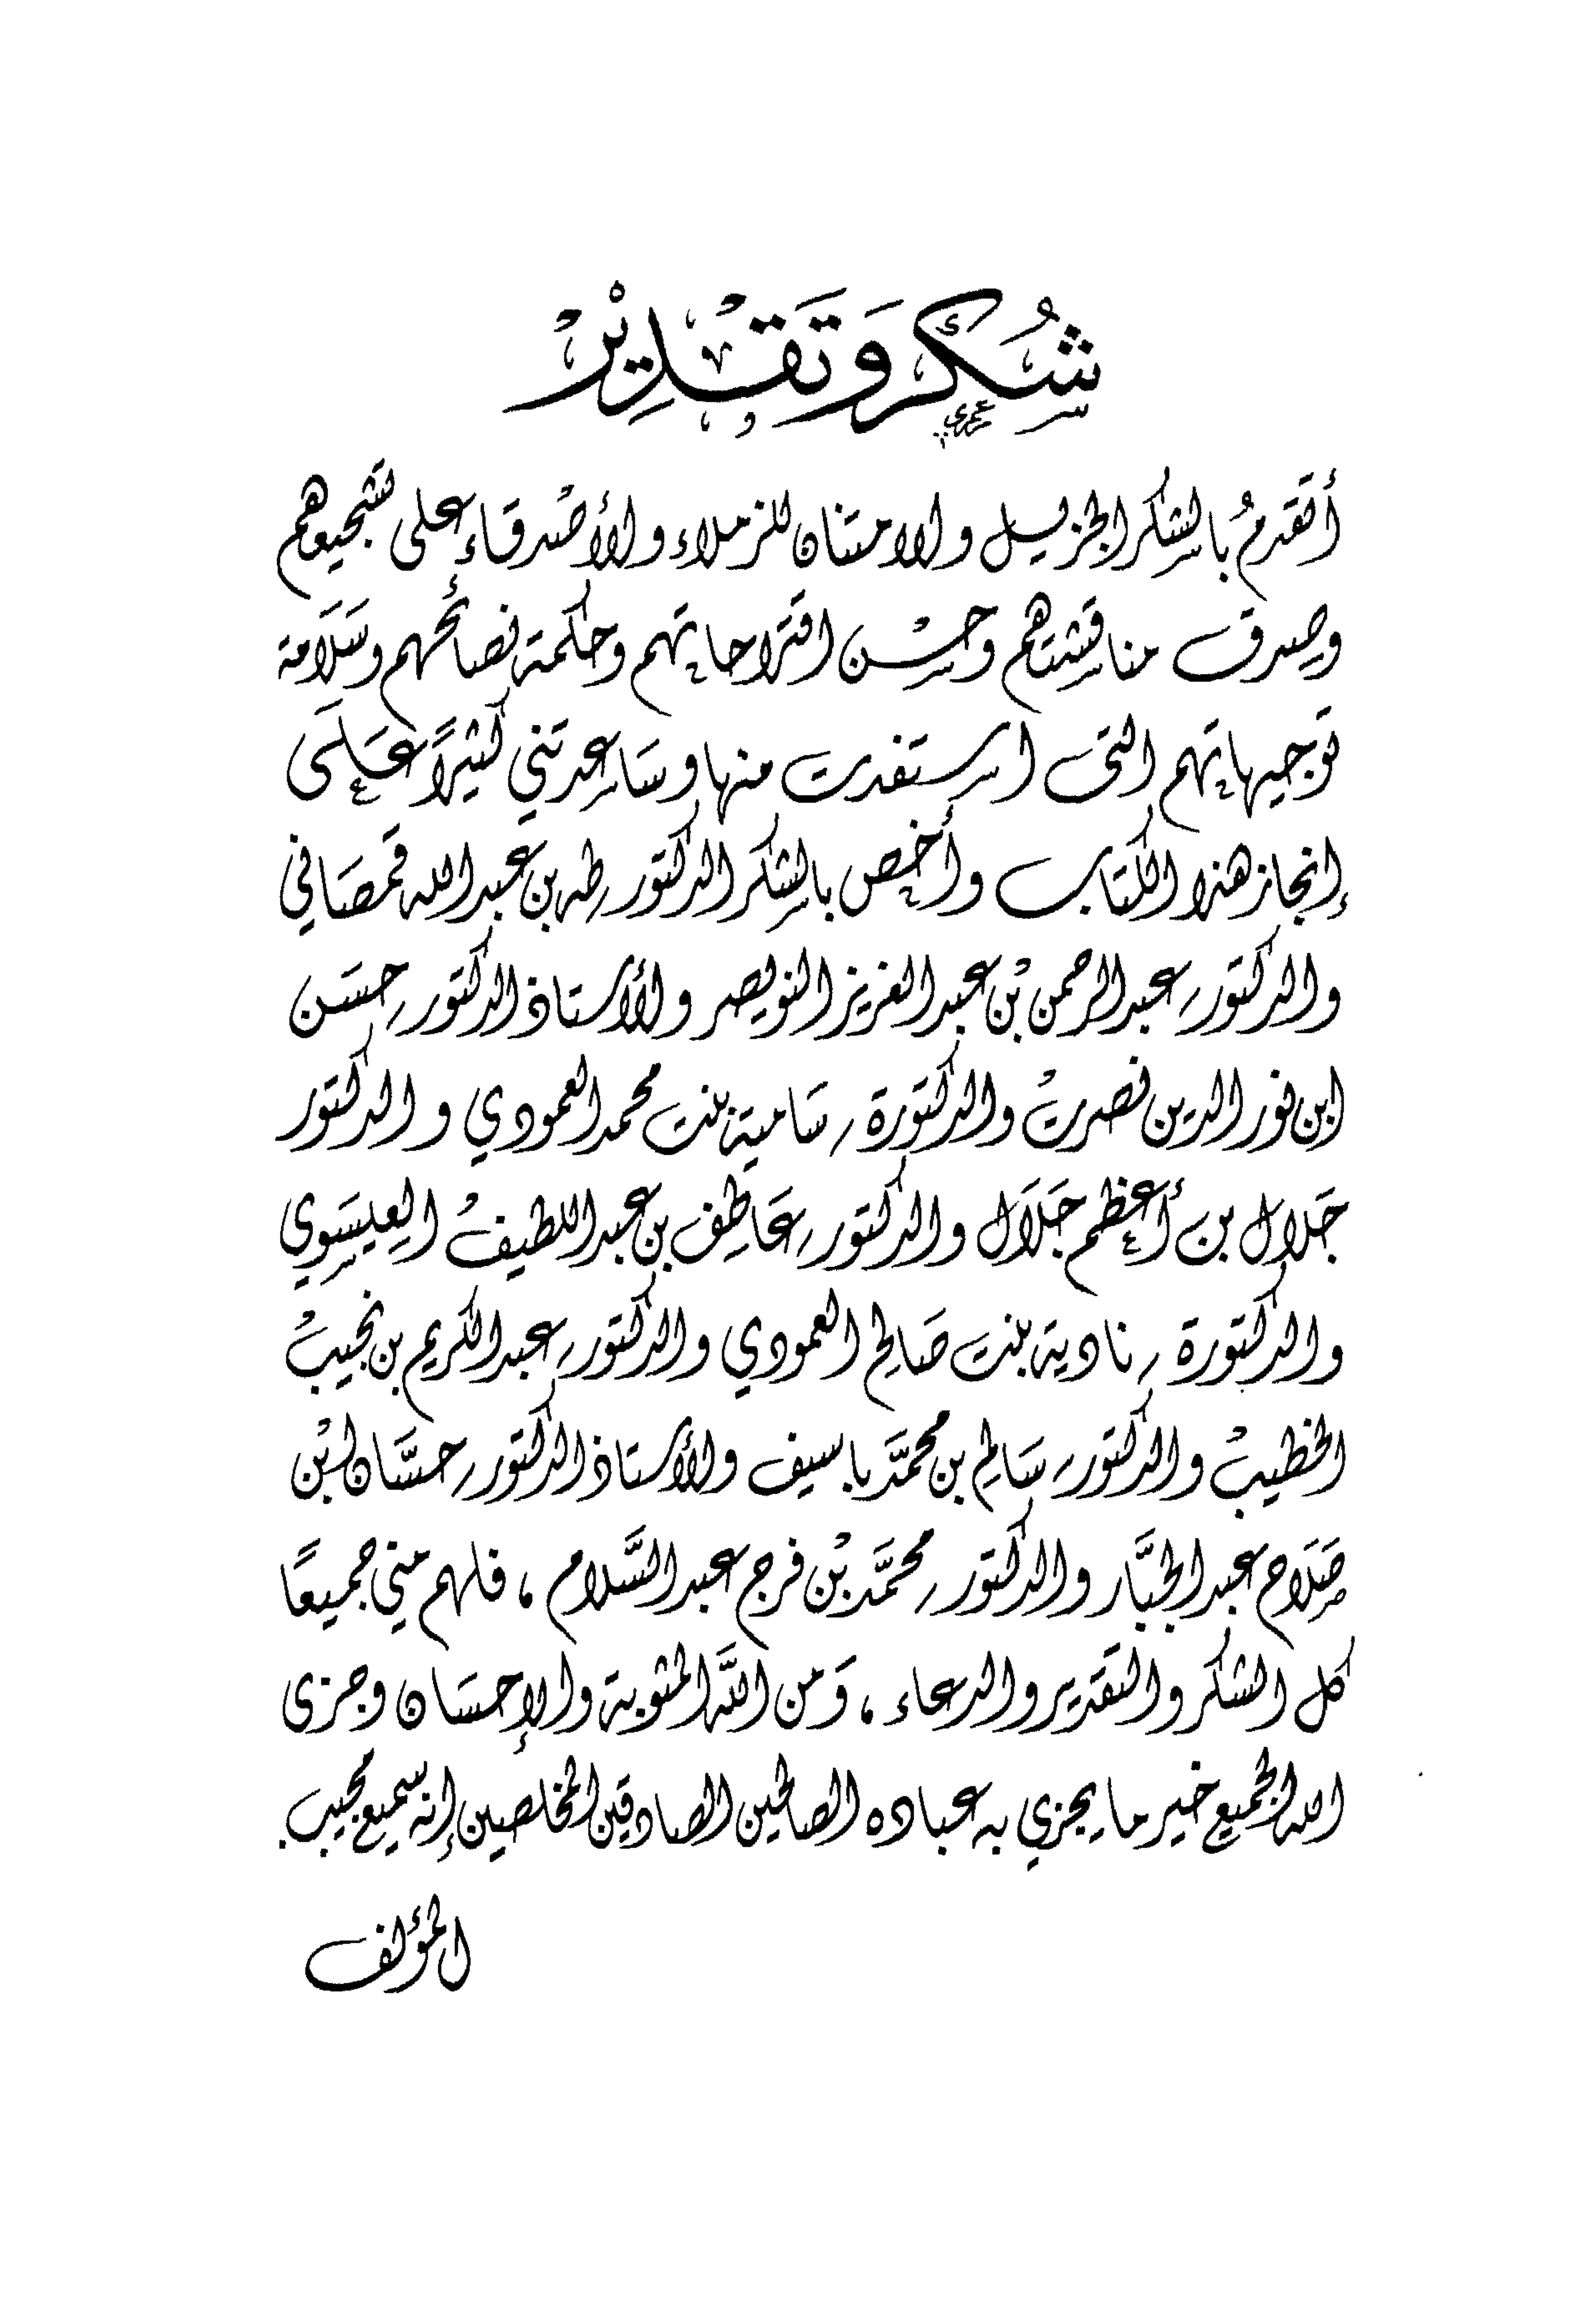 شُكْر وَتَقْدِيْرْ
أتقدمُ بالشكر الجزيل والامتنان للزملاء والأصْدقاء على تشجيعهم
وصدق مناقشتهم وحسْن اقتراحاتهم وحكمة نصائحهم وسَلَامة
توجيهاتهم التى استفدت منها وسَاعدتني كثيرًا عَلَى
إنجاز هذا الكتاب وأخص بالشكر الدكتور طه بن عبد الله قمصَاني
والدكتور عبد الرحمن بْن عبد العزيز النويصر والأستاذ الدكتور حسَن
ابن نور الدين نصرتْ والدكتورة سَامية بنت محمد العمودي والدكتور
جَلال بن أعظم جَلَال والدكتور عَاطِف بن عبد اللطيفْ العِيسَوي
والدكتورة نادية بنت صَالح العمودي والدكتور عبد الكريم بن نجيبْ
الخطيبْ والدكتور سَالم بن محمَّد باسيف والأستاذ الدكتور حسَّان ابْن
صَلَاح عبد الجبَّار والدكتور محمَّد بْن فرج عبد السَّلام ، فلهم مني جميعًا
كل الشكر والتقدير والدعاء ، وَمن اللَّه المثوبة والإحسَان وجزى
الله الجميع خير ما يجزي به عباده الصالحين الصادقين المخلصين إنه سميع مجيب.
المؤلف